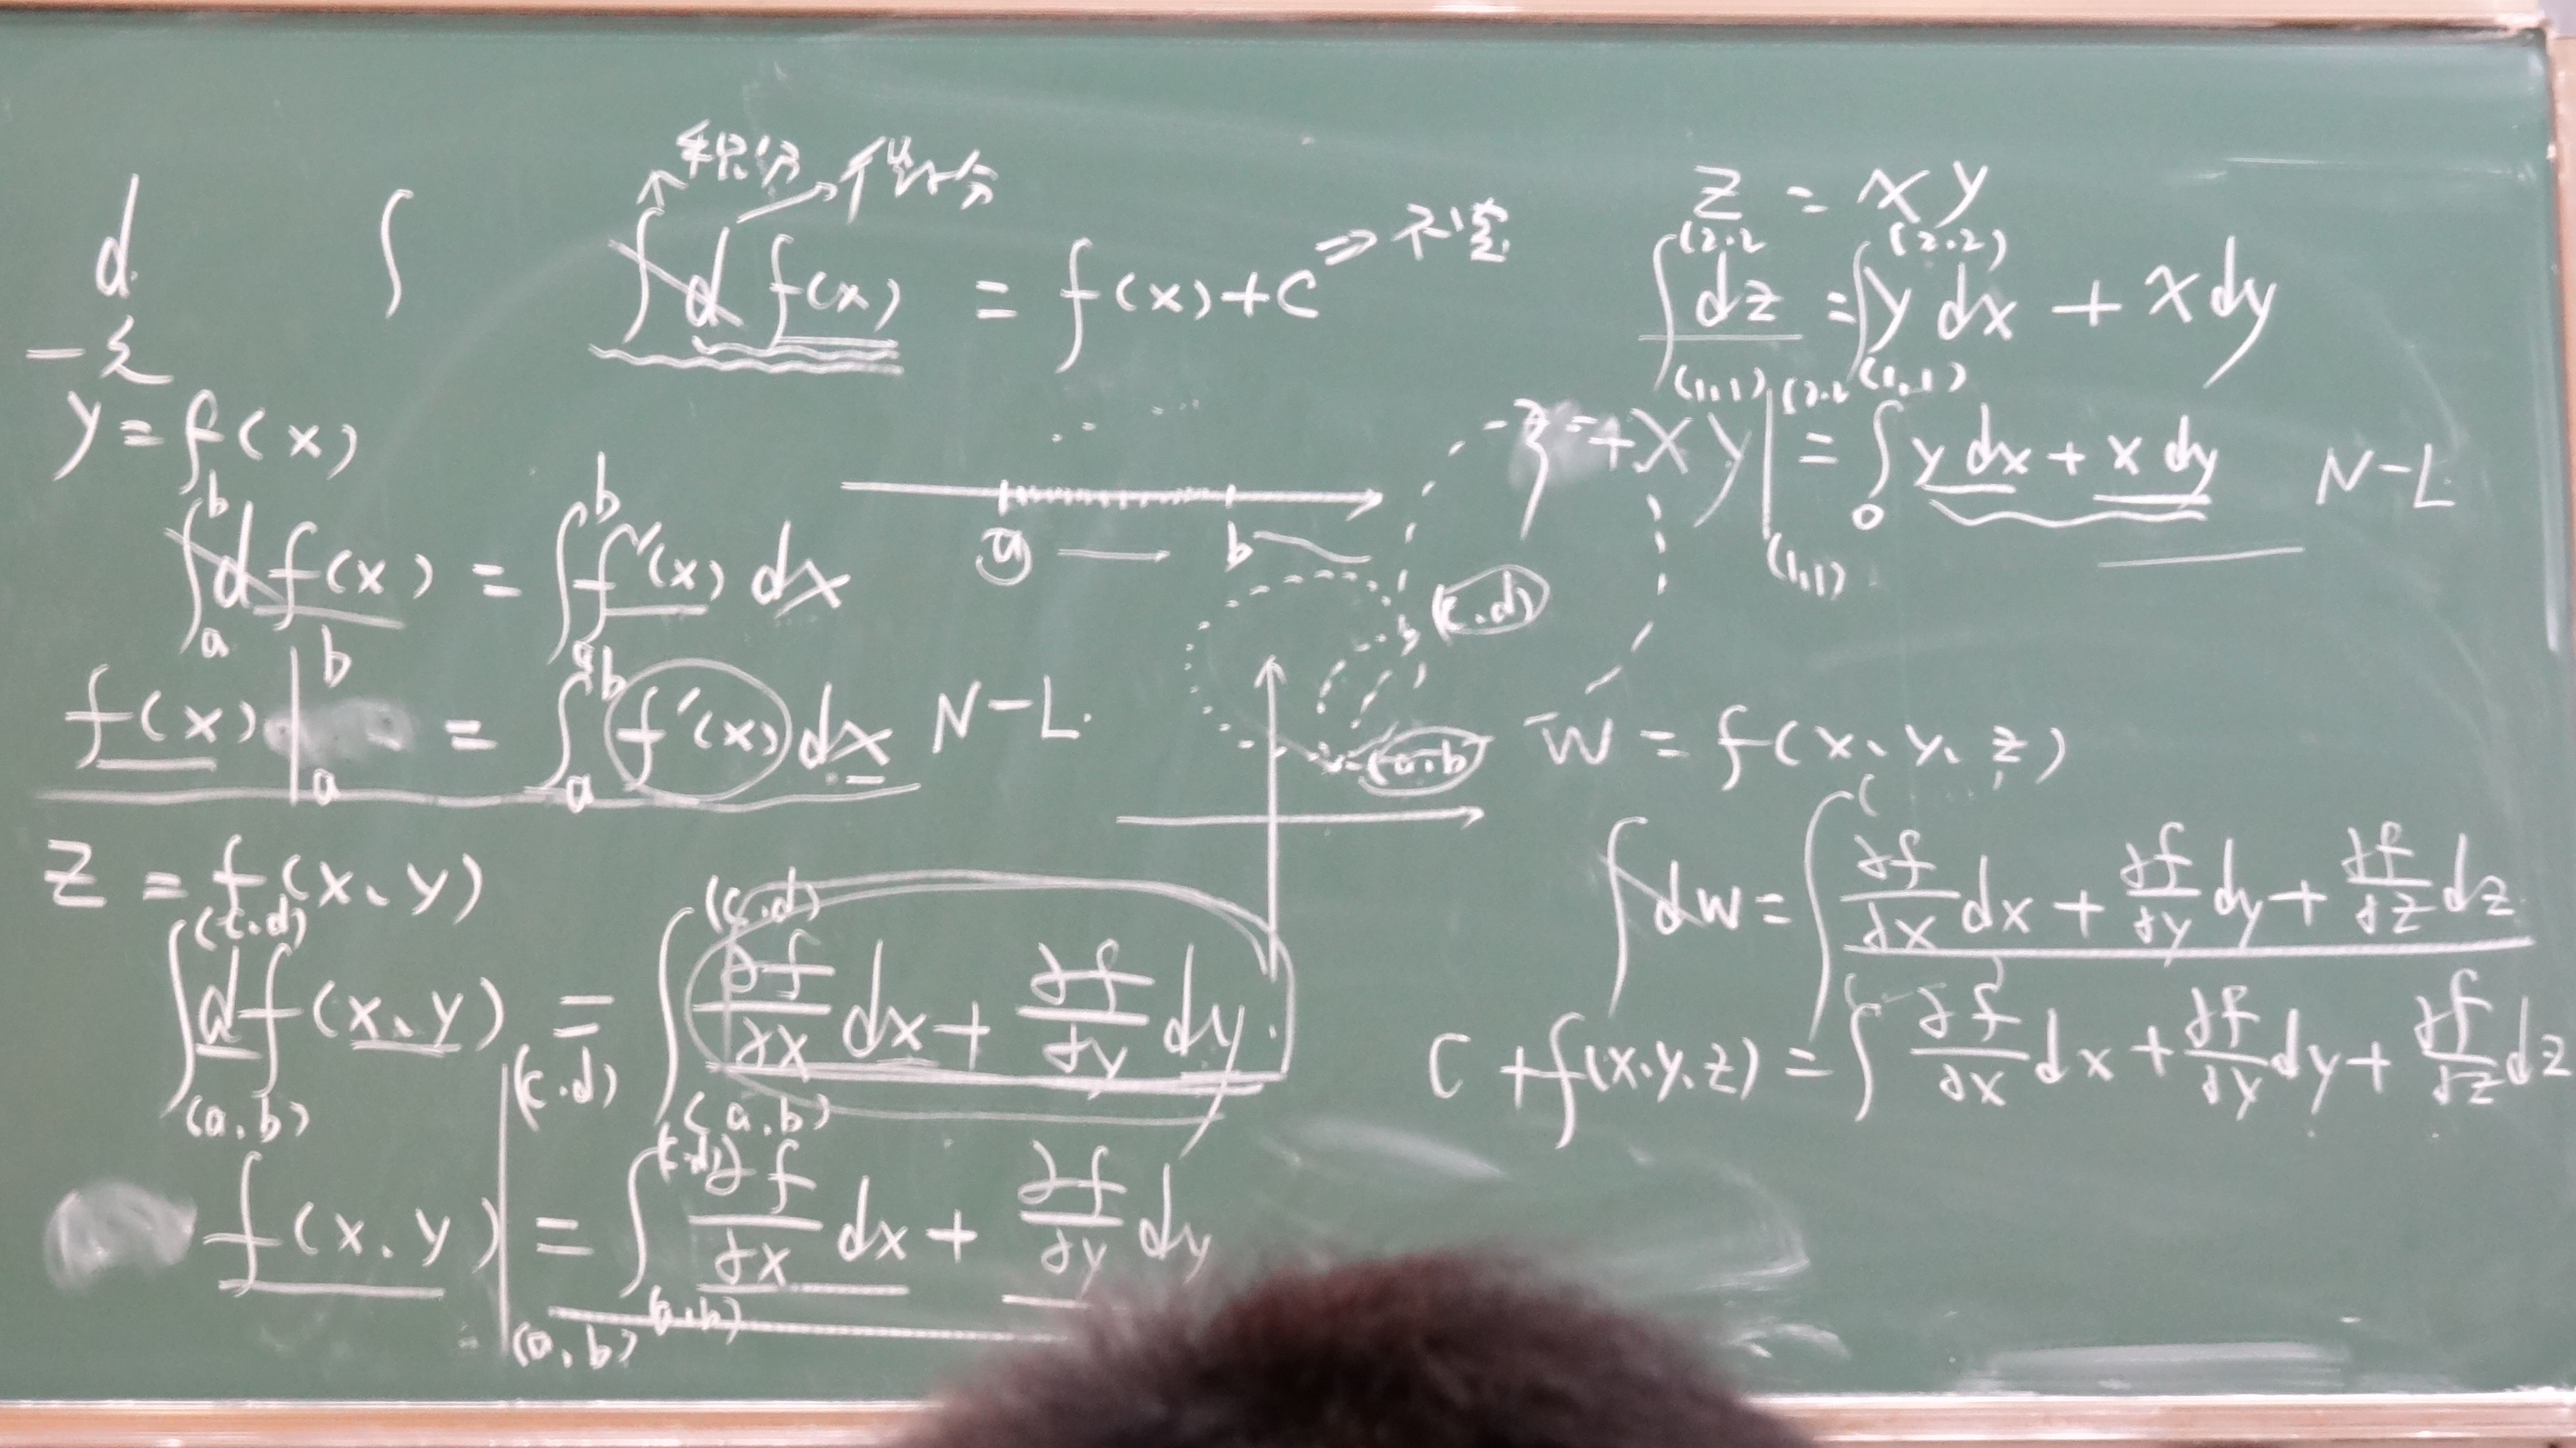 积分 微分
d ∫ ∫ d f(x) = f(x)+C ⇒ 不定
一元
y = f(x)
∫_a^b d f(x) = ∫_a^b f'(x) dx
f(x) |_a^b = ∫_a^b f'(x) dx N-L.
a b
(c.d)
(a.b)
z = f(x、y)
∫_(a,b)^(c.d) d f(x、y) = ∫_(a,b)^(c.d) ∂f/∂x dx + ∂f/∂y dy.
f(x、y) |_(a,b)^(c.d) = ∫_(a,b)^(c.d) ∂f/∂x dx + ∂f/∂y dy
z = xy
∫_(1,1)^(2.2) dz = ∫_(1,1)^(2.2) y dx + x dy
+xy |_(1,1)^(2.2) = ∫ y dx + x dy N-L
W = f(x、y、z)
∫ dW = ∫ ∂f/∂x dx + ∂f/∂y dy + ∂f/∂z dz
C + f(x.y.z) = ∫ ∂f/∂x dx + ∂f/∂y dy + ∂f/∂z dz